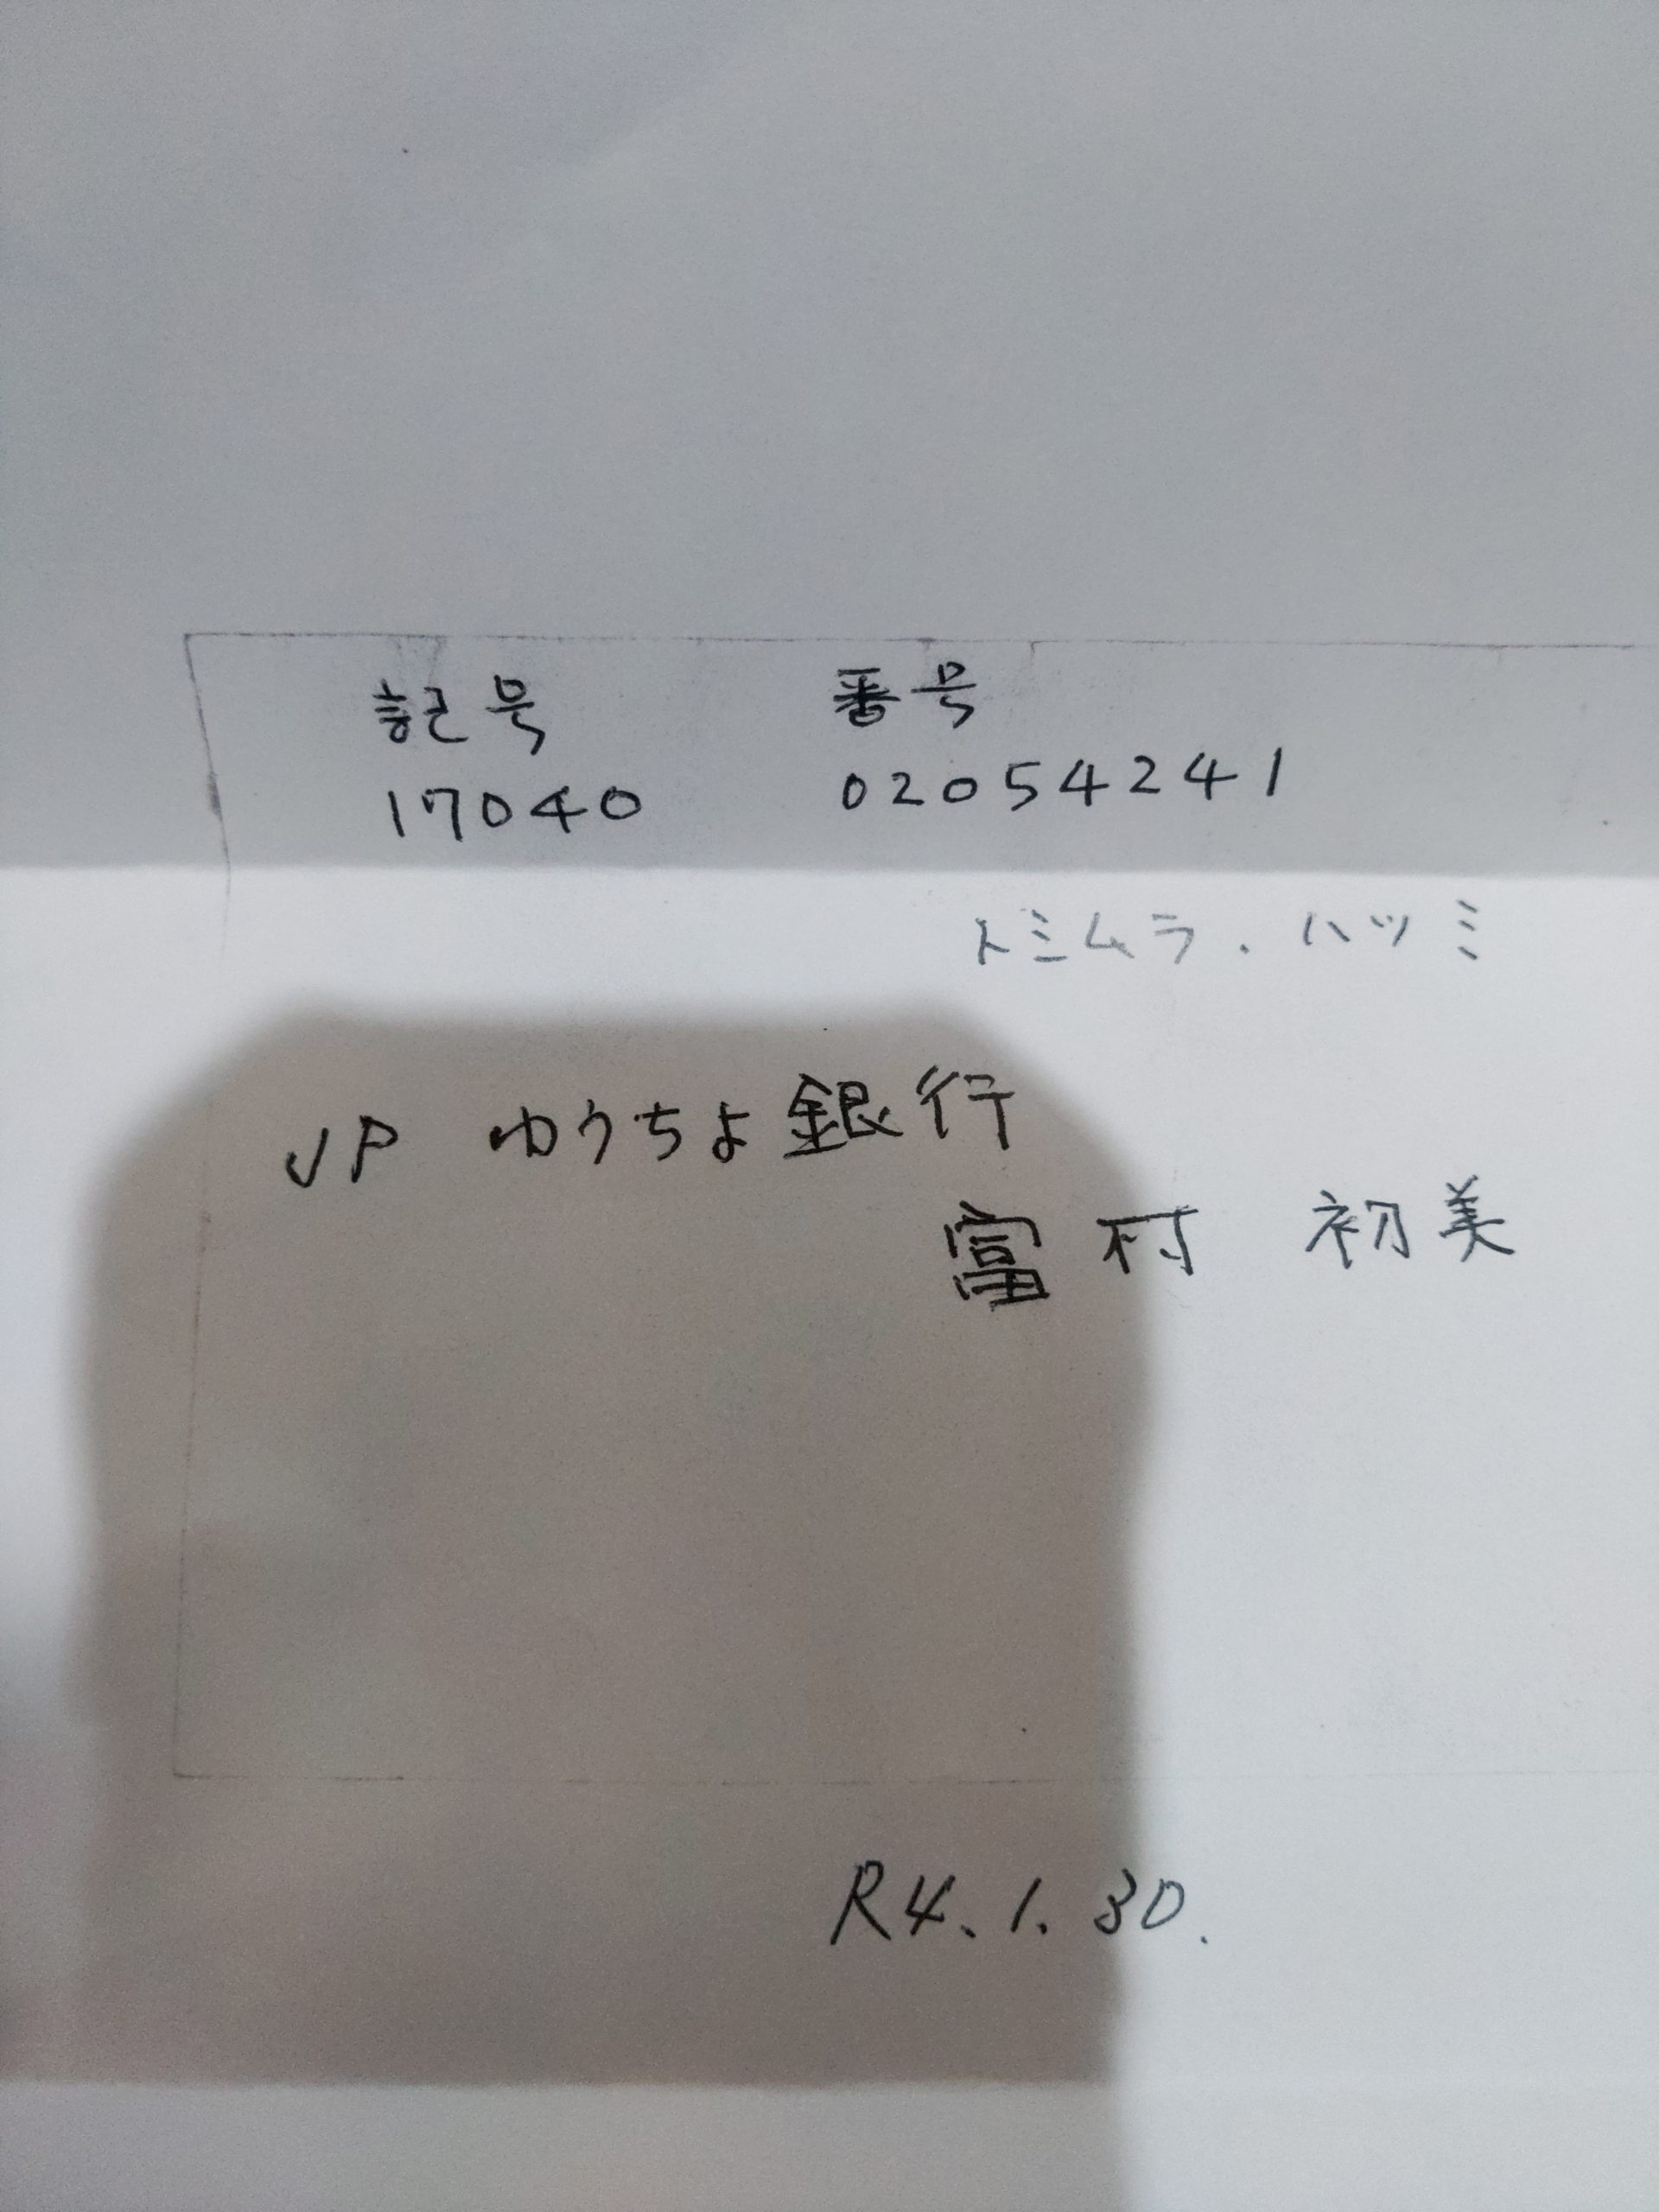 記号　番号
17040　02054241
トミムラ．ハツミ
JP ゆうちょ銀行
富村 初美
R4、1、30.